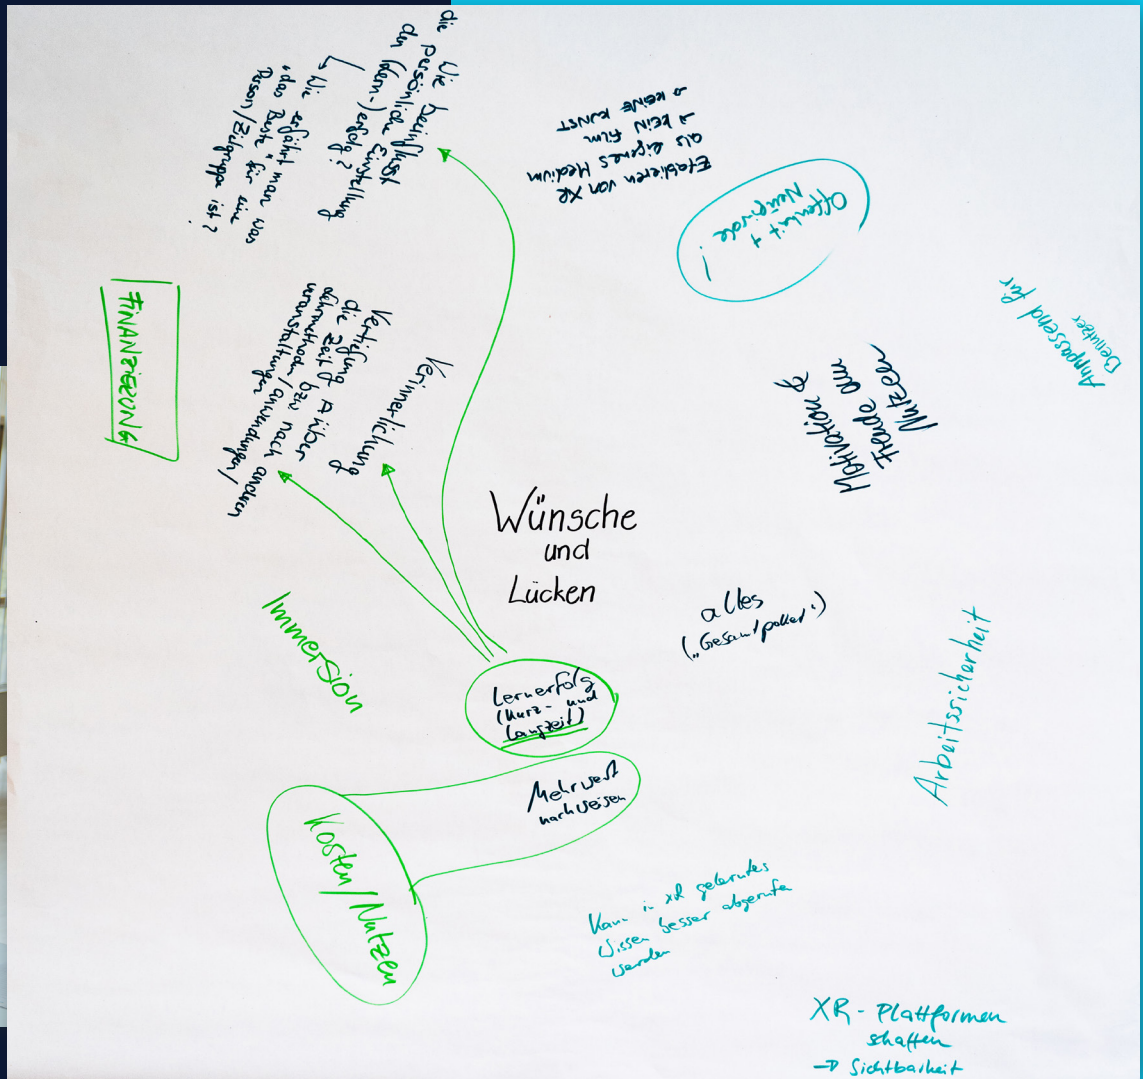 Wie beinflusst
die persönliche Einstellung
den (Lern-)erfolg?
↳ Wie erfährt man was
"das Beste" für eine
Person/Zielgruppe ist?
Etablieren von XR
als eigenes Medium
→ KEIN FILM
→ KEINE KUNST
Offenheit +
Neugirde
!
Anpassend für
Benutzer
FINANZIERUNG
Verinnerlichung
Vertiefung über
die Zeit bzw nach anderen
Lehrmethoden/Anwendungen/
veranstaltungen
Motivation &
Freude am
Nutzen
Wünsche
und
Lücken
Immersion
alles
("Gesamtpaket")
Arbeitssicherheit
Lernerfolg
(Kurz- und
Langzeit)
Mehrwert
nachweisen
Kosten/Nutzen
Kann in XR gelerntes
Wissen besser abgerufen
werden
XR-Plattformen
schaffen
→ Sichtbarkeit